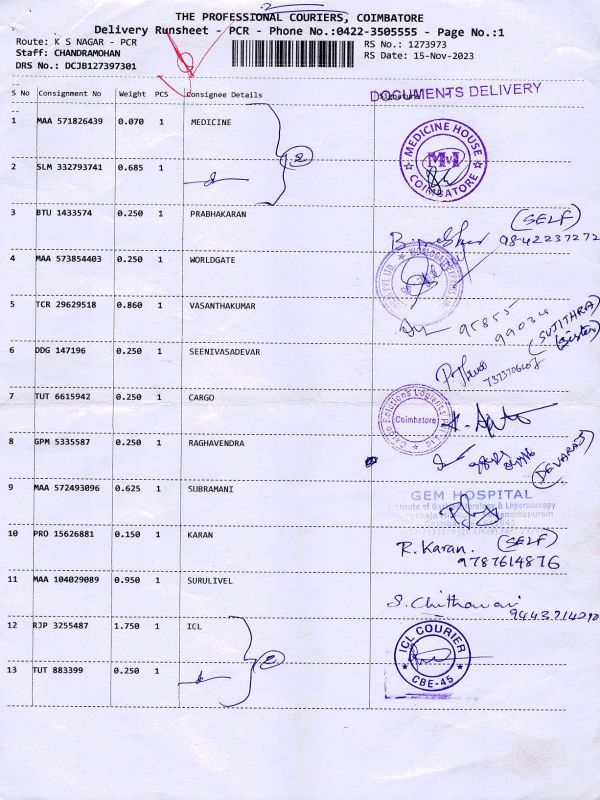 THE PROFESSIONAL COURIERS, COIMBATORE
Delivery Runsheet - PCR - Phone No.:0422-3505555 - Page No.:1
Route: K S NAGAR - PCR
RS No.: 1273973
Staff: CHANDRAMOHAN
RS Date: 15-Nov-2023
DRS No.: DCJB127397301
S No Consignment No Weight PCS Consignee Details Signature
DOCUMENTS DELIVERY
1 MAA 571826439 0.070 1 MEDICINE
MEDICINE HOUSE
COIMBATORE
2
2 SLM 332793741 0.685 1
3 BTU 1433574 0.250 1 PRABHAKARAN
(SELF)
9842237272
4 MAA 573854403 0.250 1 WORLDGATE
5 TCR 29629518 0.860 1 VASANTHKUMAR
95855
99034
(SUJITHRA)
(Sister)
6 DDG 147196 0.250 1 SEENIVASADEVAR
7 TUT 6615942 0.250 1 CARGO
Cargo Solutions Logistics
Coimbatore
8 GPM 5335587 0.250 1 RAGHAVENDRA
(DEVARAJ)
9 MAA 572493096 0.625 1 SUBRAMANI
GEM HOSPITAL
10 PRO 15626881 0.150 1 KARAN
R. Karan. (SELF)
9787614876
11 MAA 104029089 0.950 1 SURULIVEL
12 RJP 3255487 1.750 1 ICL
ICL COURIER
CBE-45
2
13 TUT 883399 0.250 1